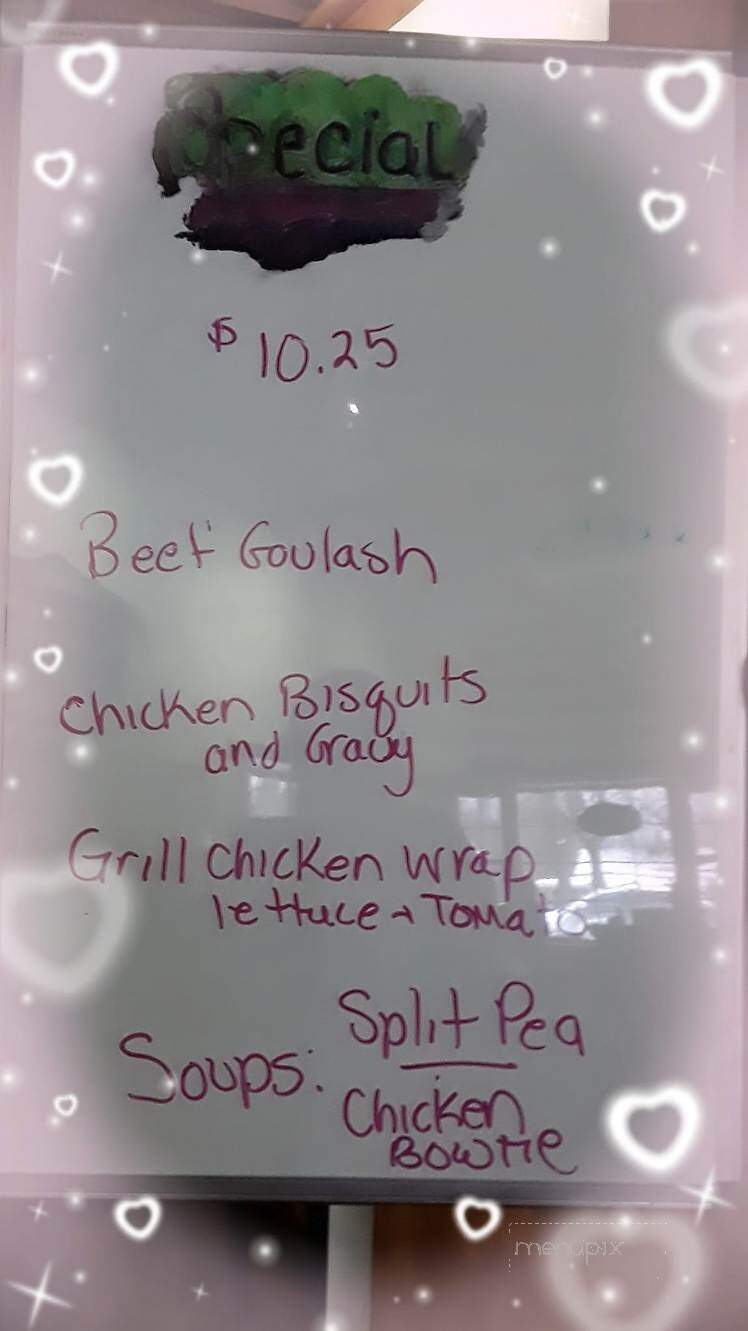 Special
$10.25
Beef Goulash
Chicken Bisquits
and Gravy
Grill Chicken Wrap
lettuce + Tomato
Soups: Split Pea
Chicken
Bowtie
menupix